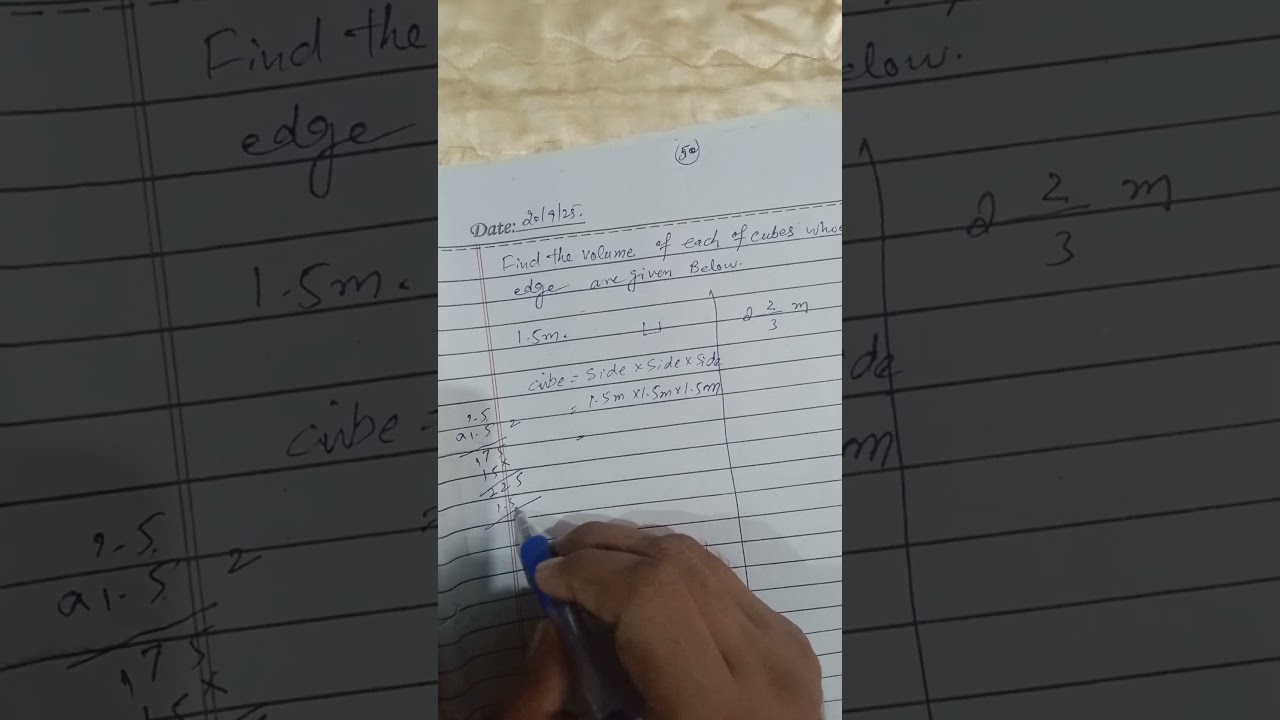 50
Date: 20/9/25.
Find the volume of each of cubes whose
edge are given Below.
1.5m.
2 2/3 m
cube = side × side × side
= 1.5m × 1.5m × 1.5m
=
1.5
1.5
75
15×
225
1.5